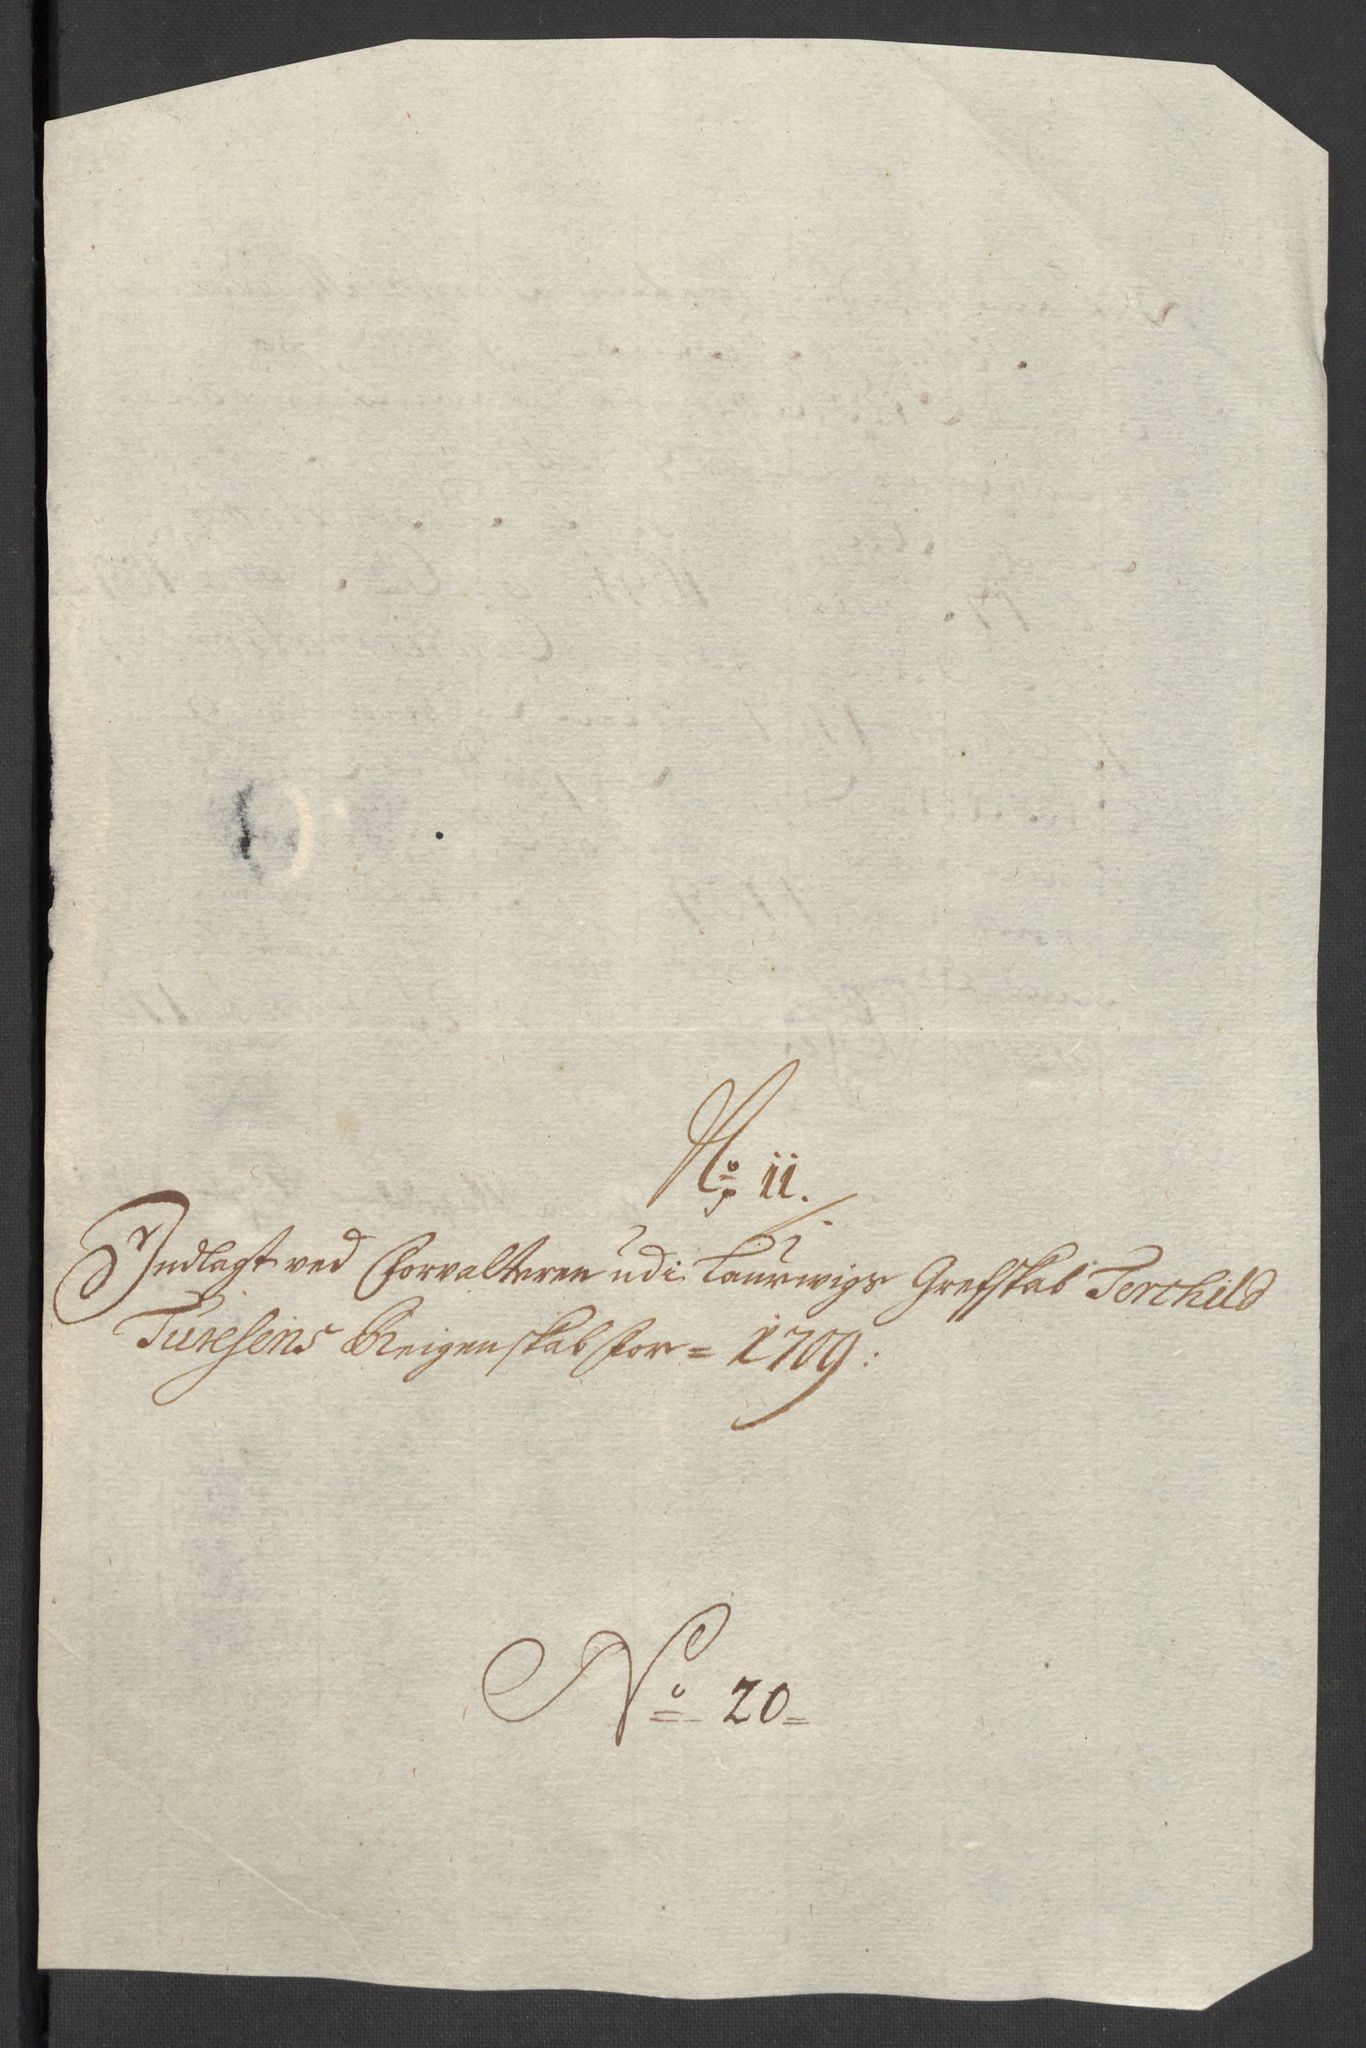 No: 11.
Indlagt ved Forvalteren udi Laurwigs Grefskab Terchild
Turesens Reigenskab for = 1709:
No 20=